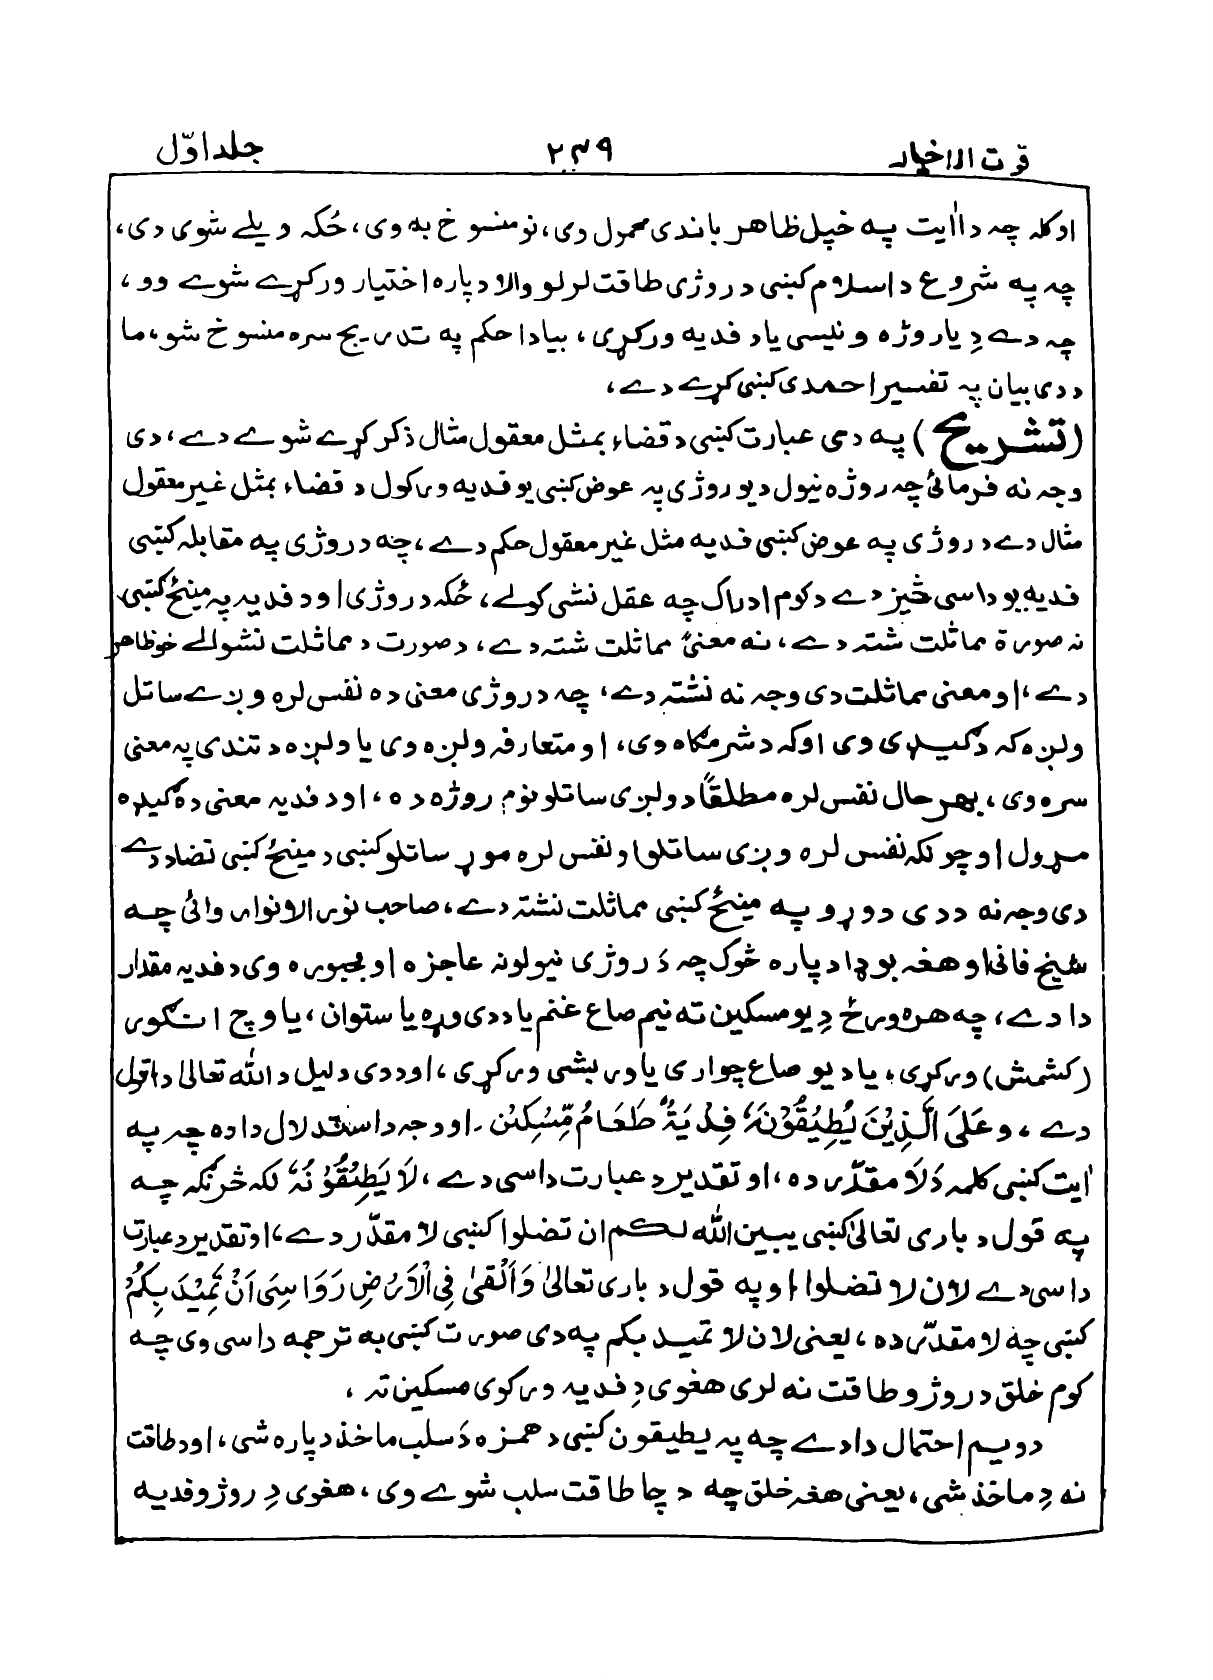 قرت الاخیار ۲۳۹ جلد اوّل
اوکله چه دا اٰیت په خپل ظاهر باندی محمول دی، نو منسوخ به وی، ځکه ویلے شوی دی،
چه په شروع د اسلام کښی د روژی طاقت لرلو والا دپاره اختیار ورکړے شوے وو،
چه دے دِ یا روژه ونیسی یا دِ فدیه ورکړی، بیا دا حکم په تدریج سره منسوخ شو، ما
ددی بیان په تفسیر احمدی کښی کړے دے،
(تشریح) په دی عبارت کښی د قضاء بمثل معقول مثال ذکر کړے شوے دے، دی
وجه نه فرمائی چه روژه نیول د یو روژی په عوض کښی یو فدیه ورکول د قضاء بمثل غیر معقول
مثال دے د روژی په عوض کښی فدیه مثل غیر معقول حکم دے، چه د روژی په مقابله کښی
فدیه یو داسی څیز دے د کوم ادراک چه عقل نشی کولے، ځکه د روژی او د فدیه په مینځ کښی
نه صورة مماثلت شته دے، نه معنیً مماثلت شته دے، د صورت د مماثلت نشوالے خو ظاهر
دے، او معنی مماثلت دی وجه نه نشته دے، چه د روژی معنی ده نفس لره وږے ساتل
ولږه که د ګیډی وی اوکه د شرمګاه وی، او متعارفه ولږه وی یا ولږه د تندی په معنی
سره وی، بهر حال نفس لره مطلقاً د ولږی ساتلو نوم روژه ده، او د فدیه معنی ده ګیډه
مړول او چونکه نفس لره وږی ساتلو او نفس لره موړ ساتلو کښی د مینځ کښی تضاد دے
دی وجه نه ددی دوړو په مینځ کښی مماثلت نشته دے، صاحب نور الانوار وائی چه
شیخ فانی او هغه بوډا دپاره څوک چه دَ روژی نیولو نه عاجزه او مجبوره وی د فدیه مقدار
دا دے، چه هره ورځ دِ یو مسکین ته نیم صاع غنم یا ددی وړه یا ستوان، یا وچ انګوری
(کشمش) ورکړی، یا دِ یو صاع جواری یا وربشی ورکړی، او ددی دلیل د الله تعالیٰ دا قول
دے، وَعَلَی الَّذِیْنَ یُطِیْقُوْنَهٗ فِدْیَةٌ طَعَامُ مِّسْکِیْن۔ او وجه د استدلال دا ده چه په
اٰیت کښی کلمه دَ لَا مقدّر ده، او تقدیر د عبارت داسی دے، لَا یَطِیْقُوْنَهٗ لکه څرنګه چه
په قول د باری تعالیٰ کښی یبین الله لکم ان تضلوا کښی لا مقدّر دے، او تقدیر د عبارت
داسی دے لان لا تضلوا او په قول د باری تعالیٰ وَاَلْقیٰ فِی الْاَرْضِ رَوَاسِیَ اَنْ تَمِیْدَ بِکُمْ
کښی چه لا مقدّر ده، یعنی لان لا تمید بکم په دی صورت کښی به ترجمه داسی وی چه
کوم خلق د روژو طاقت نه لری هغوی دِ فدیه ورکوی مسکین ته،
دویم احتمال دا دے چه په یطیقون کښی د همزه دَ سلب ماخذ دپاره شی، او د طاقت
نه دِ ماخذ شی، یعنی هغه خلق چه د چا طاقت سلب شوے وی، هغوی دِ روژو فدیه